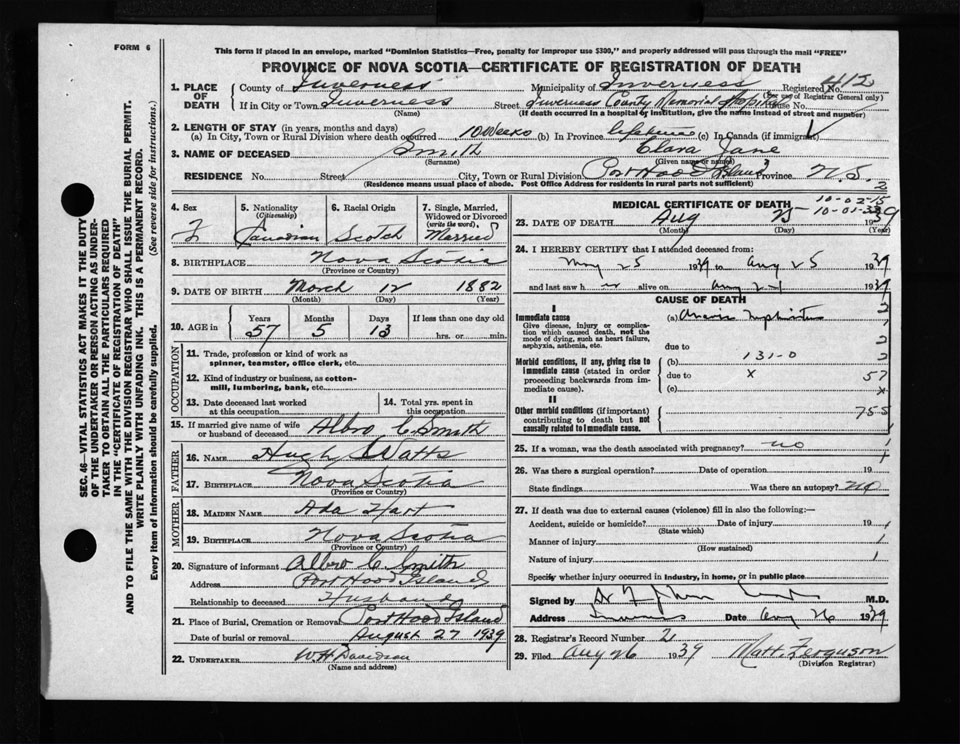 FORM 6
This form if placed in an envelope, marked "Dominion Statistics—Free, penalty for improper use $300," and properly addressed will pass through the mail "FREE"
PROVINCE OF NOVA SCOTIA—CERTIFICATE OF REGISTRATION OF DEATH
SEC. 46—VITAL STATISTICS ACT MAKES IT THE DUTY
OF THE UNDERTAKER OR PERSON ACTING AS UNDER-
TAKER TO OBTAIN ALL THE PARTICULARS REQUIRED
IN THE "CERTIFICATE OF REGISTRATION OF DEATH"
AND TO FILE THE SAME WITH THE DIVISION REGISTRAR WHO SHALL ISSUE THE BURIAL PERMIT.
WRITE PLAINLY WITH UNFADING INK. THIS IS A PERMANENT RECORD.
Every item of Information should be carefully supplied. (See reverse side for instructions.)
1. PLACE OF DEATH
County of Inverness Municipality of Inverness Registered No. 412
(For use of Registrar General only)
If in City or Town Inverness Street Inverness County Memorial Hospital House No.
(Name) (If death occurred in a hospital or institution, give the name instead of street and number)
2. LENGTH OF STAY (in years, months and days)
(a) In City, Town or Rural Division where death occurred 10 Weeks (b) In Province lifetime (c) In Canada (if immigrant)
3. NAME OF DECEASED Smith Clara Jane
(Surname) (Given name or names)
RESIDENCE No. Street City, Town or Rural Division Port Hood Island Province N.S.
(Residence means usual place of abode. Post Office Address for residents in rural parts not sufficient) 2
4. Sex 5. Nationality (Citizenship) 6. Racial Origin 7. Single, Married, Widowed or Divorced (write the word)
F Canadian Scotch Married
8. BIRTHPLACE Nova Scotia
(Province or Country)
9. DATE OF BIRTH March 12 1882
(Month) (Day) (Year)
10. AGE in Years Months Days If less than one day old
57 5 13 hrs. or min.
OCCUPATION
11. Trade, profession or kind of work as spinner, teamster, office clerk, etc.
12. Kind of industry or business, as cotton-mill, lumbering, bank, etc.
13. Date deceased last worked at this occupation
14. Total yrs. spent in this occupation
15. If married give name of wife or husband of deceased Albro C. Smith
FATHER
16. NAME Hugh Watts
17. BIRTHPLACE Nova Scotia
(Province or Country)
MOTHER
18. MAIDEN NAME Ada Hart
19. BIRTHPLACE Nova Scotia
(Province or Country)
20. Signature of informant Albro C. Smith
Address Port Hood Island
Relationship to deceased Husband
21. Place of Burial, Cremation or Removal Port Hood Island
Date of burial or removal August 27 1939
22. UNDERTAKER W H Davidson
(Name and address)
MEDICAL CERTIFICATE OF DEATH
10-02-15
10-01-33
23. DATE OF DEATH Aug 25 1939
(Month) (Day) (Year)
24. I HEREBY CERTIFY that I attended deceased from:
May 25 1939 to Aug 25 1939
and last saw h alive on Aug 1939
CAUSE OF DEATH
I
Immediate cause
Give disease, injury or complication which caused death, not the mode of dying, such as heart failure, asphyxia, asthenia, etc.
(a)
due to
Morbid conditions, if any, giving rise to immediate cause (stated in order proceeding backwards from immediate cause).
(b) 131-0
due to X 57
(c) X
II
Other morbid conditions (important) contributing to death but not causally related to immediate cause.
25. If a woman, was the death associated with pregnancy? no
26. Was there a surgical operation? Date of operation 19
State findings Was there an autopsy? no
27. If death was due to external causes (violence) fill in also the following:—
Accident, suicide or homicide? Date of injury 19
(State which)
Manner of injury
(How sustained)
Nature of injury
Specify whether injury occurred in industry, in home, or in public place
Signed by M.D.
Address Inverness Date Aug 26 1939
28. Registrar's Record Number 2
29. Filed Aug 26 1939 Matt. Ferguson
(Division Registrar)